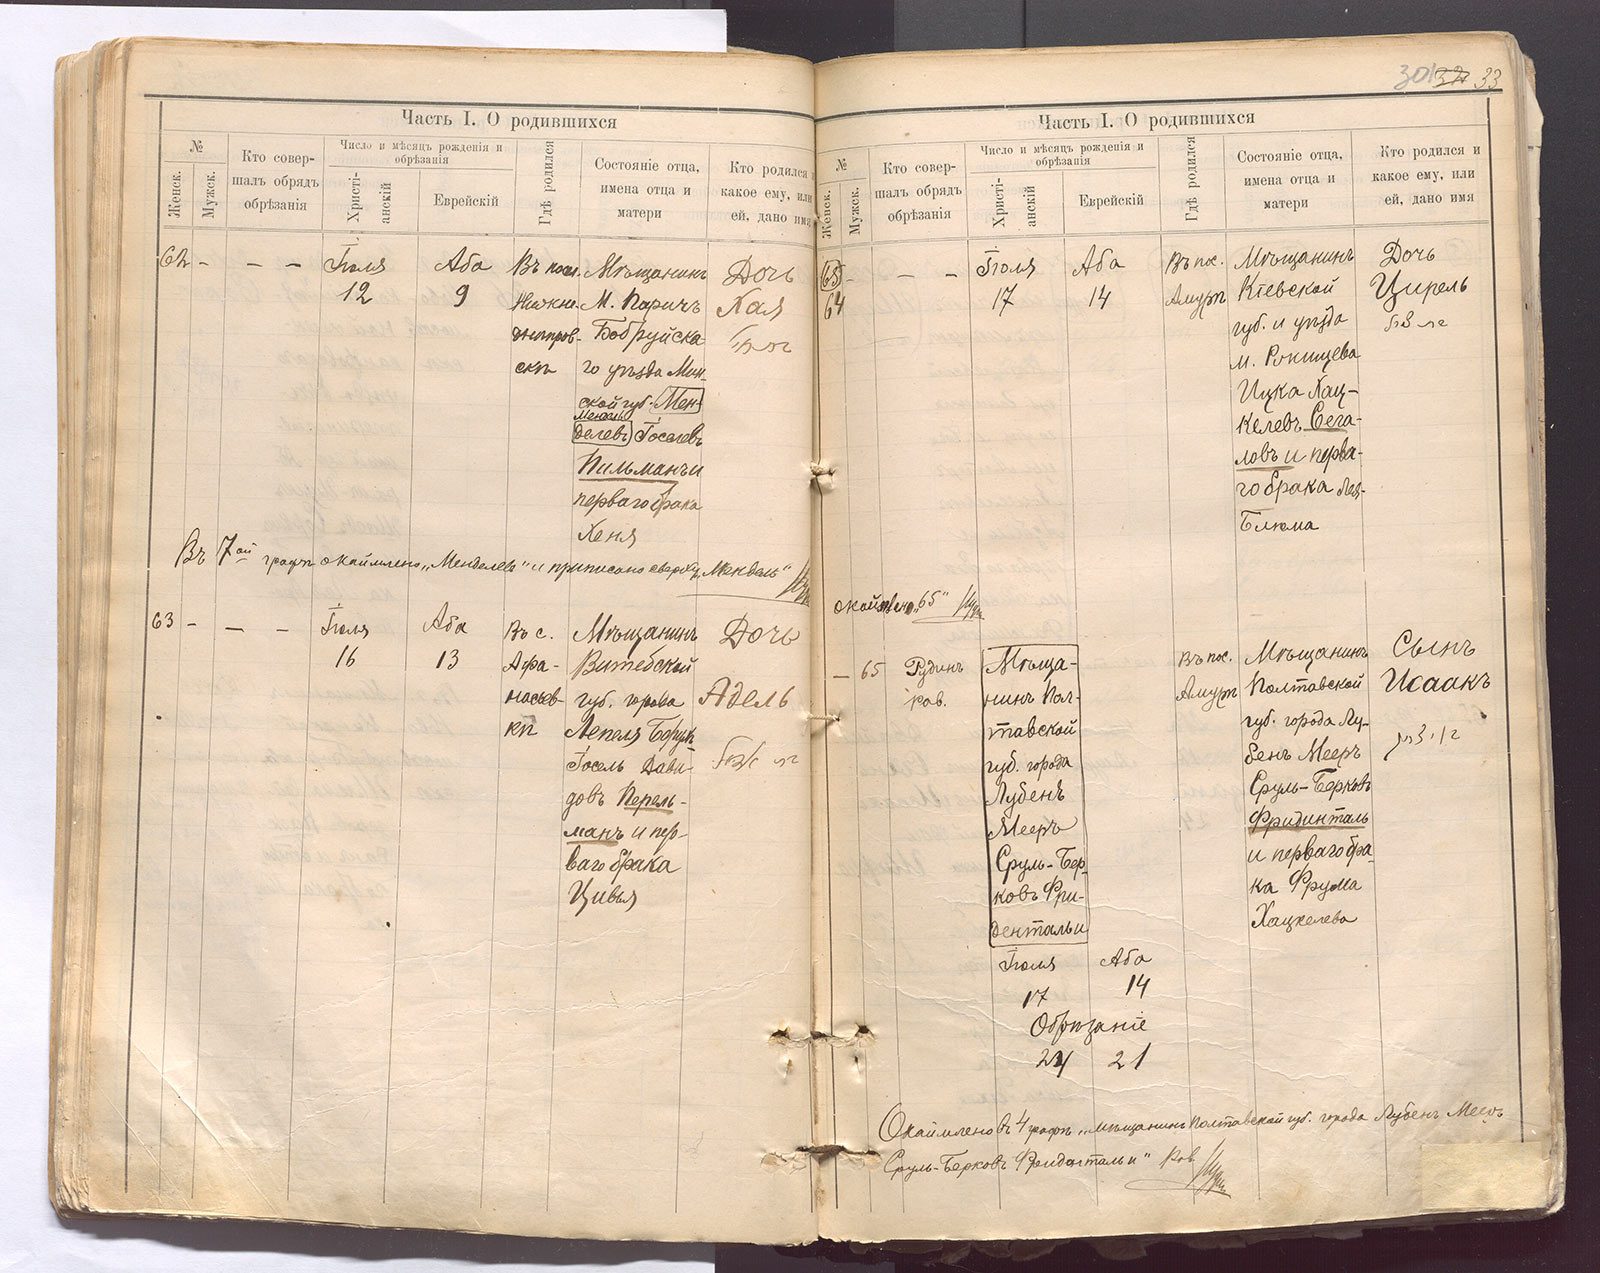 33
Часть I. О родившихся
№
Женск.
Мужск.
Кто совер-
шалъ обрядъ
обрѣзанія
Число и мѣсяцъ рожденія и
обрѣзанія
Христі-
анскій
Еврейскій
Гдѣ родился
Состояніе отца,
имена отца и
матери
Кто родился и
какое ему, или
ей, дано имя
62 - - - Іюля 12
Аба 9
Въ пос.
Нижне-
днѣпров-
скѣ
Мѣщанинъ
М. Паричъ
Бобруйска-
го уѣзда Мин-
ской губ. Мен-
Мендель
делевъ Іоселевъ
Пильманъ и
перваго брака
Хеня
Дочь
Хая
Въ 7ой графѣ окаймлено „Менделевъ" и приписано сверху „Мендель"
63 - - - Іюля 16
Аба 13
Въ с.
Афа-
насьев-
кѣ
Мѣщанинъ
Витебской
губ. города
Лепеля Берук-
Іосель Дави-
довъ Перель-
манъ и пер-
ваго брака
Цивья
Дочь
Адель
Часть I. О родившихся
№
Женск.
Мужск.
Кто совер-
шалъ обрядъ
обрѣзанія
Число и мѣсяцъ рожденія и
обрѣзанія
Христі-
анскій
Еврейскій
Гдѣ родился
Состояніе отца,
имена отца и
матери
Кто родился и
какое ему, или
ей, дано имя
65 -
64
- - Іюля 17
Аба 14
Въ пос.
Амурѣ
Мѣщанинъ
Кіевской
губ. и уѣзда
м. Рокищева
Ицка Хац-
келевъ Сега-
ловъ и перва-
го брака Лея-
Блюма
Дочь
Цирель
окаймлено „65"
- 65
Рудинъ
рав.
Мѣща-
нинъ Пол-
тавской
губ. города
Лубенъ
Мееръ
Сруль-Бер-
ковъ Фри-
дентальи
Іюля Аба
17 14
Обрѣзаніе
24 21
Въ пос.
Амурѣ
Мѣщанинъ
Полтавской
губ. города Лу-
бенъ Мееръ
Сруль-Берковъ
Фридинталь
и перваго бра-
ка Фрума
Хацкелева
Сынъ
Исаакъ
Окаймлено въ 4 графѣ „Мѣщанинъ Полтавской губ. города Лубенъ Мееръ
Сруль-Берковъ Фридентальи" Рав